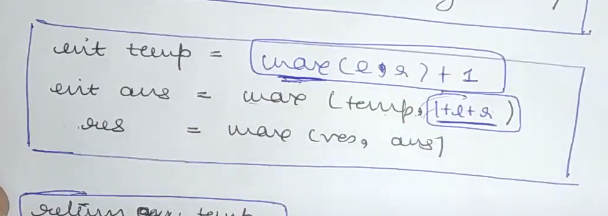 int temp = max(l, r) + 1
int ans = max (temp, 1+l+r)
res = max (res, ans)
return temp